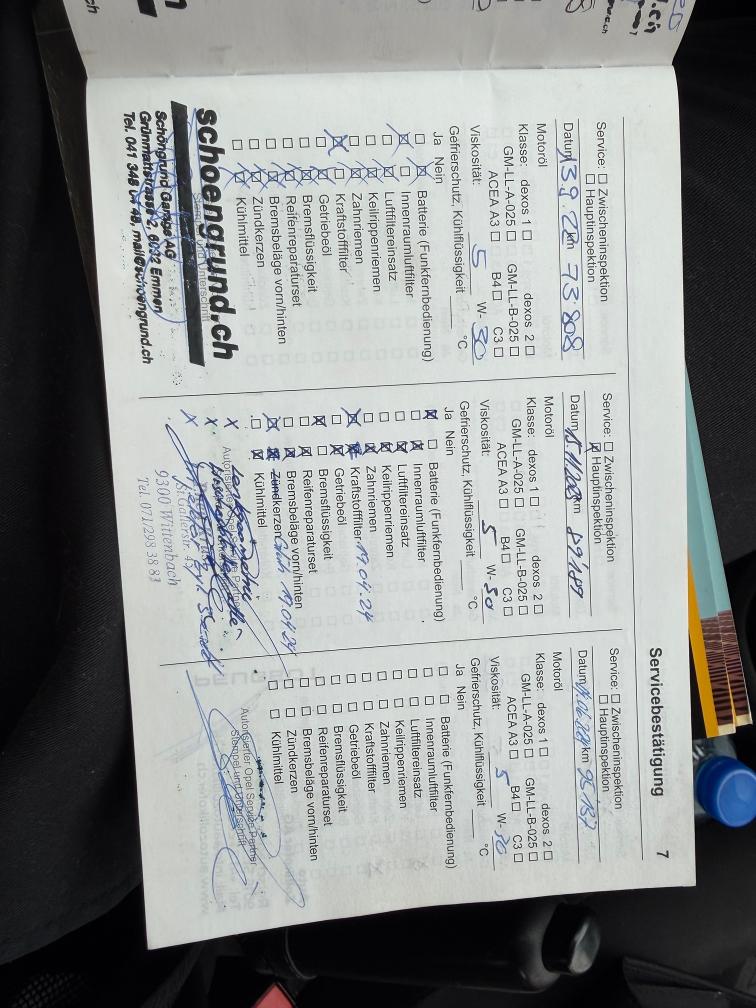 Servicebestätigung 7
Service: ☐ Zwischeninspektion
☐ Hauptinspektion
km 73 808
Motoröl
Klasse: dexos 1 ☐ dexos 2 ☐
GM-LL-A-025 ☐ GM-LL-B-025 ☐
ACEA A3 ☐ B4 ☐ C3 ☐
Viskosität: 5 W- 30
Gefrierschutz, Kühlflüssigkeit °C
Ja Nein
☐ ☒ Batterie (Funkfernbedienung)
☒ ☐ Innenraumluftfilter
☐ ☒ Luftfiltereinsatz
☐ ☒ Keilrippenriemen
☐ ☒ Zahnriemen
☒ ☐ Kraftstofffilter
☐ ☒ Getriebeöl
☐ ☒ Bremsflüssigkeit
☐ ☒ Reifenreparaturset
☐ ☒ Bremsbeläge vorn/hinten
☐ ☒ Zündkerzen
☐ ☒ Kühlmittel
schoengrund.ch
Schöngrund Garage AG
6032 Emmen
Tel. 041 348 mail@schoengrund.ch
Service: ☐ Zwischeninspektion
☒ Hauptinspektion
Datum km 89'189
Motoröl
Klasse: dexos 1 ☐ dexos 2 ☐
GM-LL-A-025 ☐ GM-LL-B-025 ☐
ACEA A3 ☐ B4 ☐ C3 ☐
Viskosität: 5 W- 30
Gefrierschutz, Kühlflüssigkeit °C
Ja Nein
☒ ☐ Batterie (Funkfernbedienung)
☐ ☒ Innenraumluftfilter
☐ ☒ Luftfiltereinsatz
☐ ☒ Keilrippenriemen
☐ ☒ Zahnriemen
☒ ☒ Kraftstofffilter 19.01.24
☐ ☒ Getriebeöl
☒ ☐ Bremsflüssigkeit
☐ ☒ Reifenreparaturset
☐ ☒ Bremsbeläge vorn/hinten
☒ ☒ Zündkerzen 19.04.24
☐ ☒ Kühlmittel
9300 Wittenbach
Tel. 071/298 38 81
Service: ☐ Zwischeninspektion
☐ Hauptinspektion
Datum km 95'187
Motoröl
Klasse: dexos 1 ☐ dexos 2 ☐
GM-LL-A-025 ☐ GM-LL-B-025 ☐
ACEA A3 ☐ B4 ☐ C3 ☐
Viskosität: 5 W- 30
Gefrierschutz, Kühlflüssigkeit °C
Ja Nein
☐ ☐ Batterie (Funkfernbedienung)
☐ ☐ Innenraumluftfilter
☐ ☐ Luftfiltereinsatz
☐ ☐ Keilrippenriemen
☐ ☐ Zahnriemen
☐ ☐ Kraftstofffilter
☐ ☐ Getriebeöl
☐ ☐ Bremsflüssigkeit
☐ ☐ Reifenreparaturset
☐ ☐ Bremsbeläge vorn/hinten
☐ ☐ Zündkerzen
☐ ☐ Kühlmittel
Autorisierter Opel Service Partner
Stempel und Unterschrift